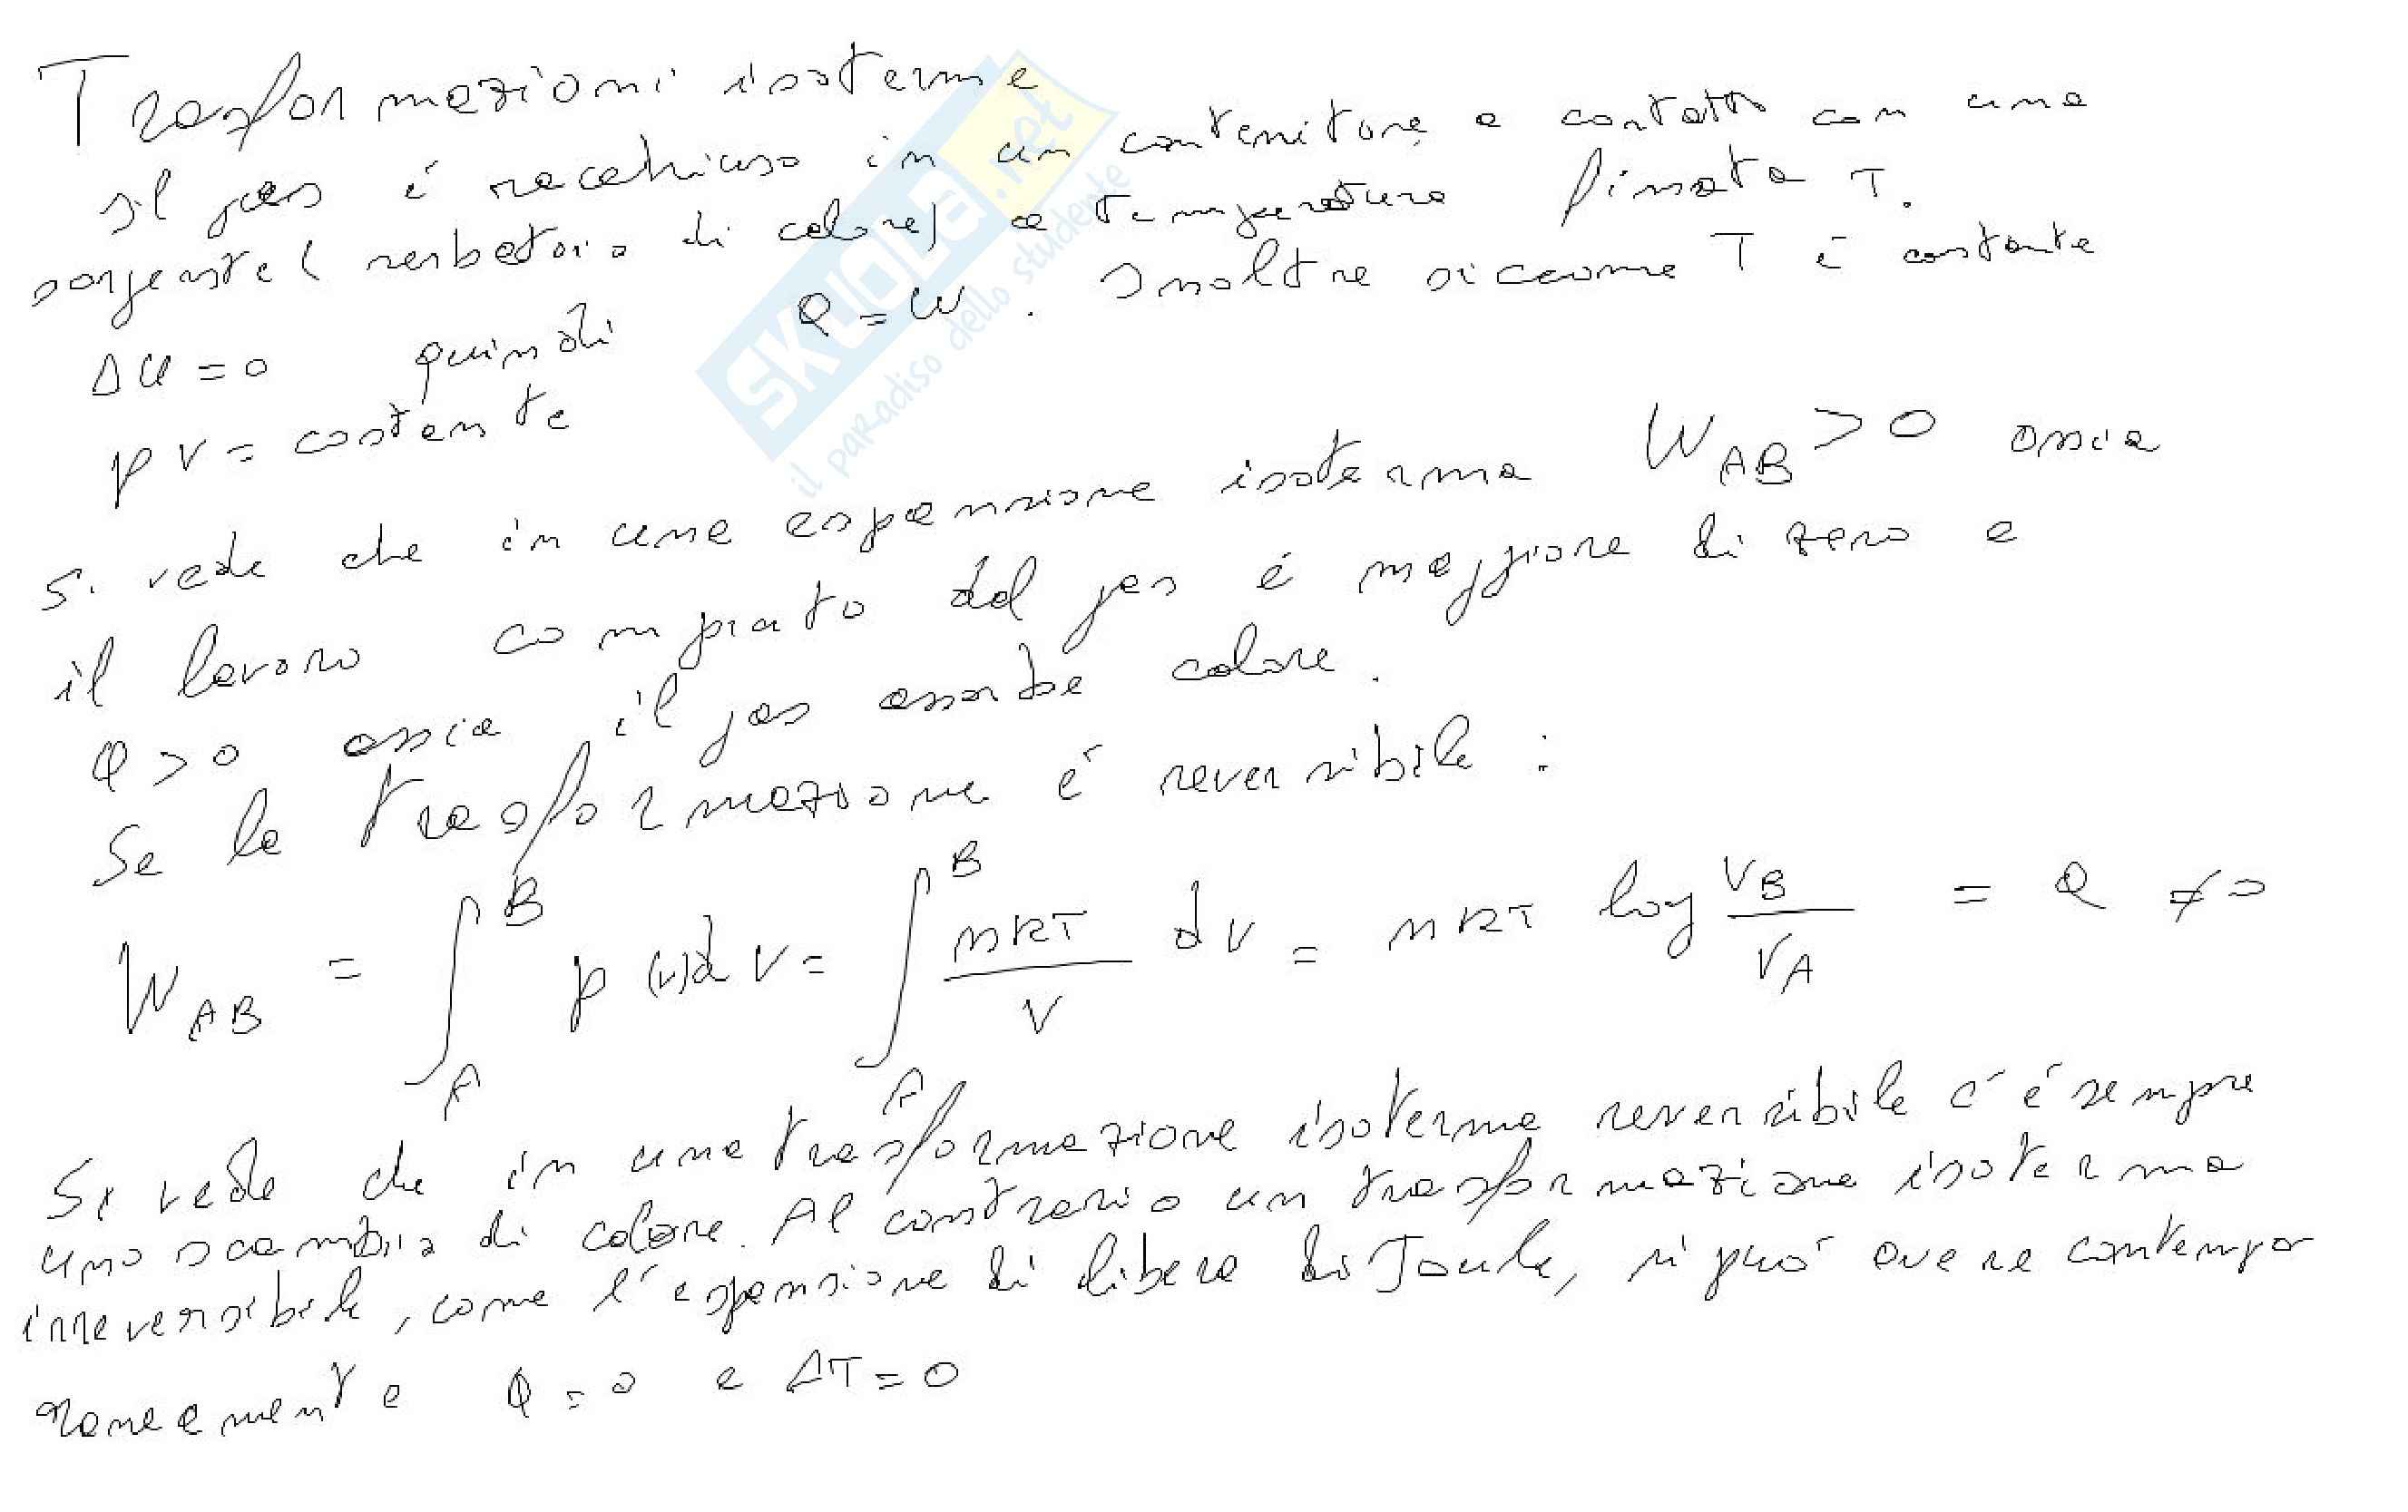 Trasformazioni isoterme
Il gas é racchiuso in un contenitore, a contatto con una
sorgente ( serbatoio di calore) a temperatura fissata T.
ΔU = 0 quindi Q = W . Inoltre siccome T é costante
pV = costante
Si vede che in una espansione isoterma W_AB > 0 ossia
il lavoro compiuto dal gas é maggiore di zero e
Q > 0 ossia il gas assorbe calore.
Se la trasformazione é reversibile :
W_AB = ∫_A^B p(v)dV = ∫_A^B nRT/V dV = nRT log V_B/V_A = Q ≠ 0
Si vede che in una trasformazione isoterma reversibile c'é sempre
uno scambio di calore. Al contrario un trasformazione isoterma
irreversibile, come l'espansione di libera di Joule, si puó avere contempo
raneamente Q = 0 e ΔT = 0
SKUOLA.net
il paradiso dello studente